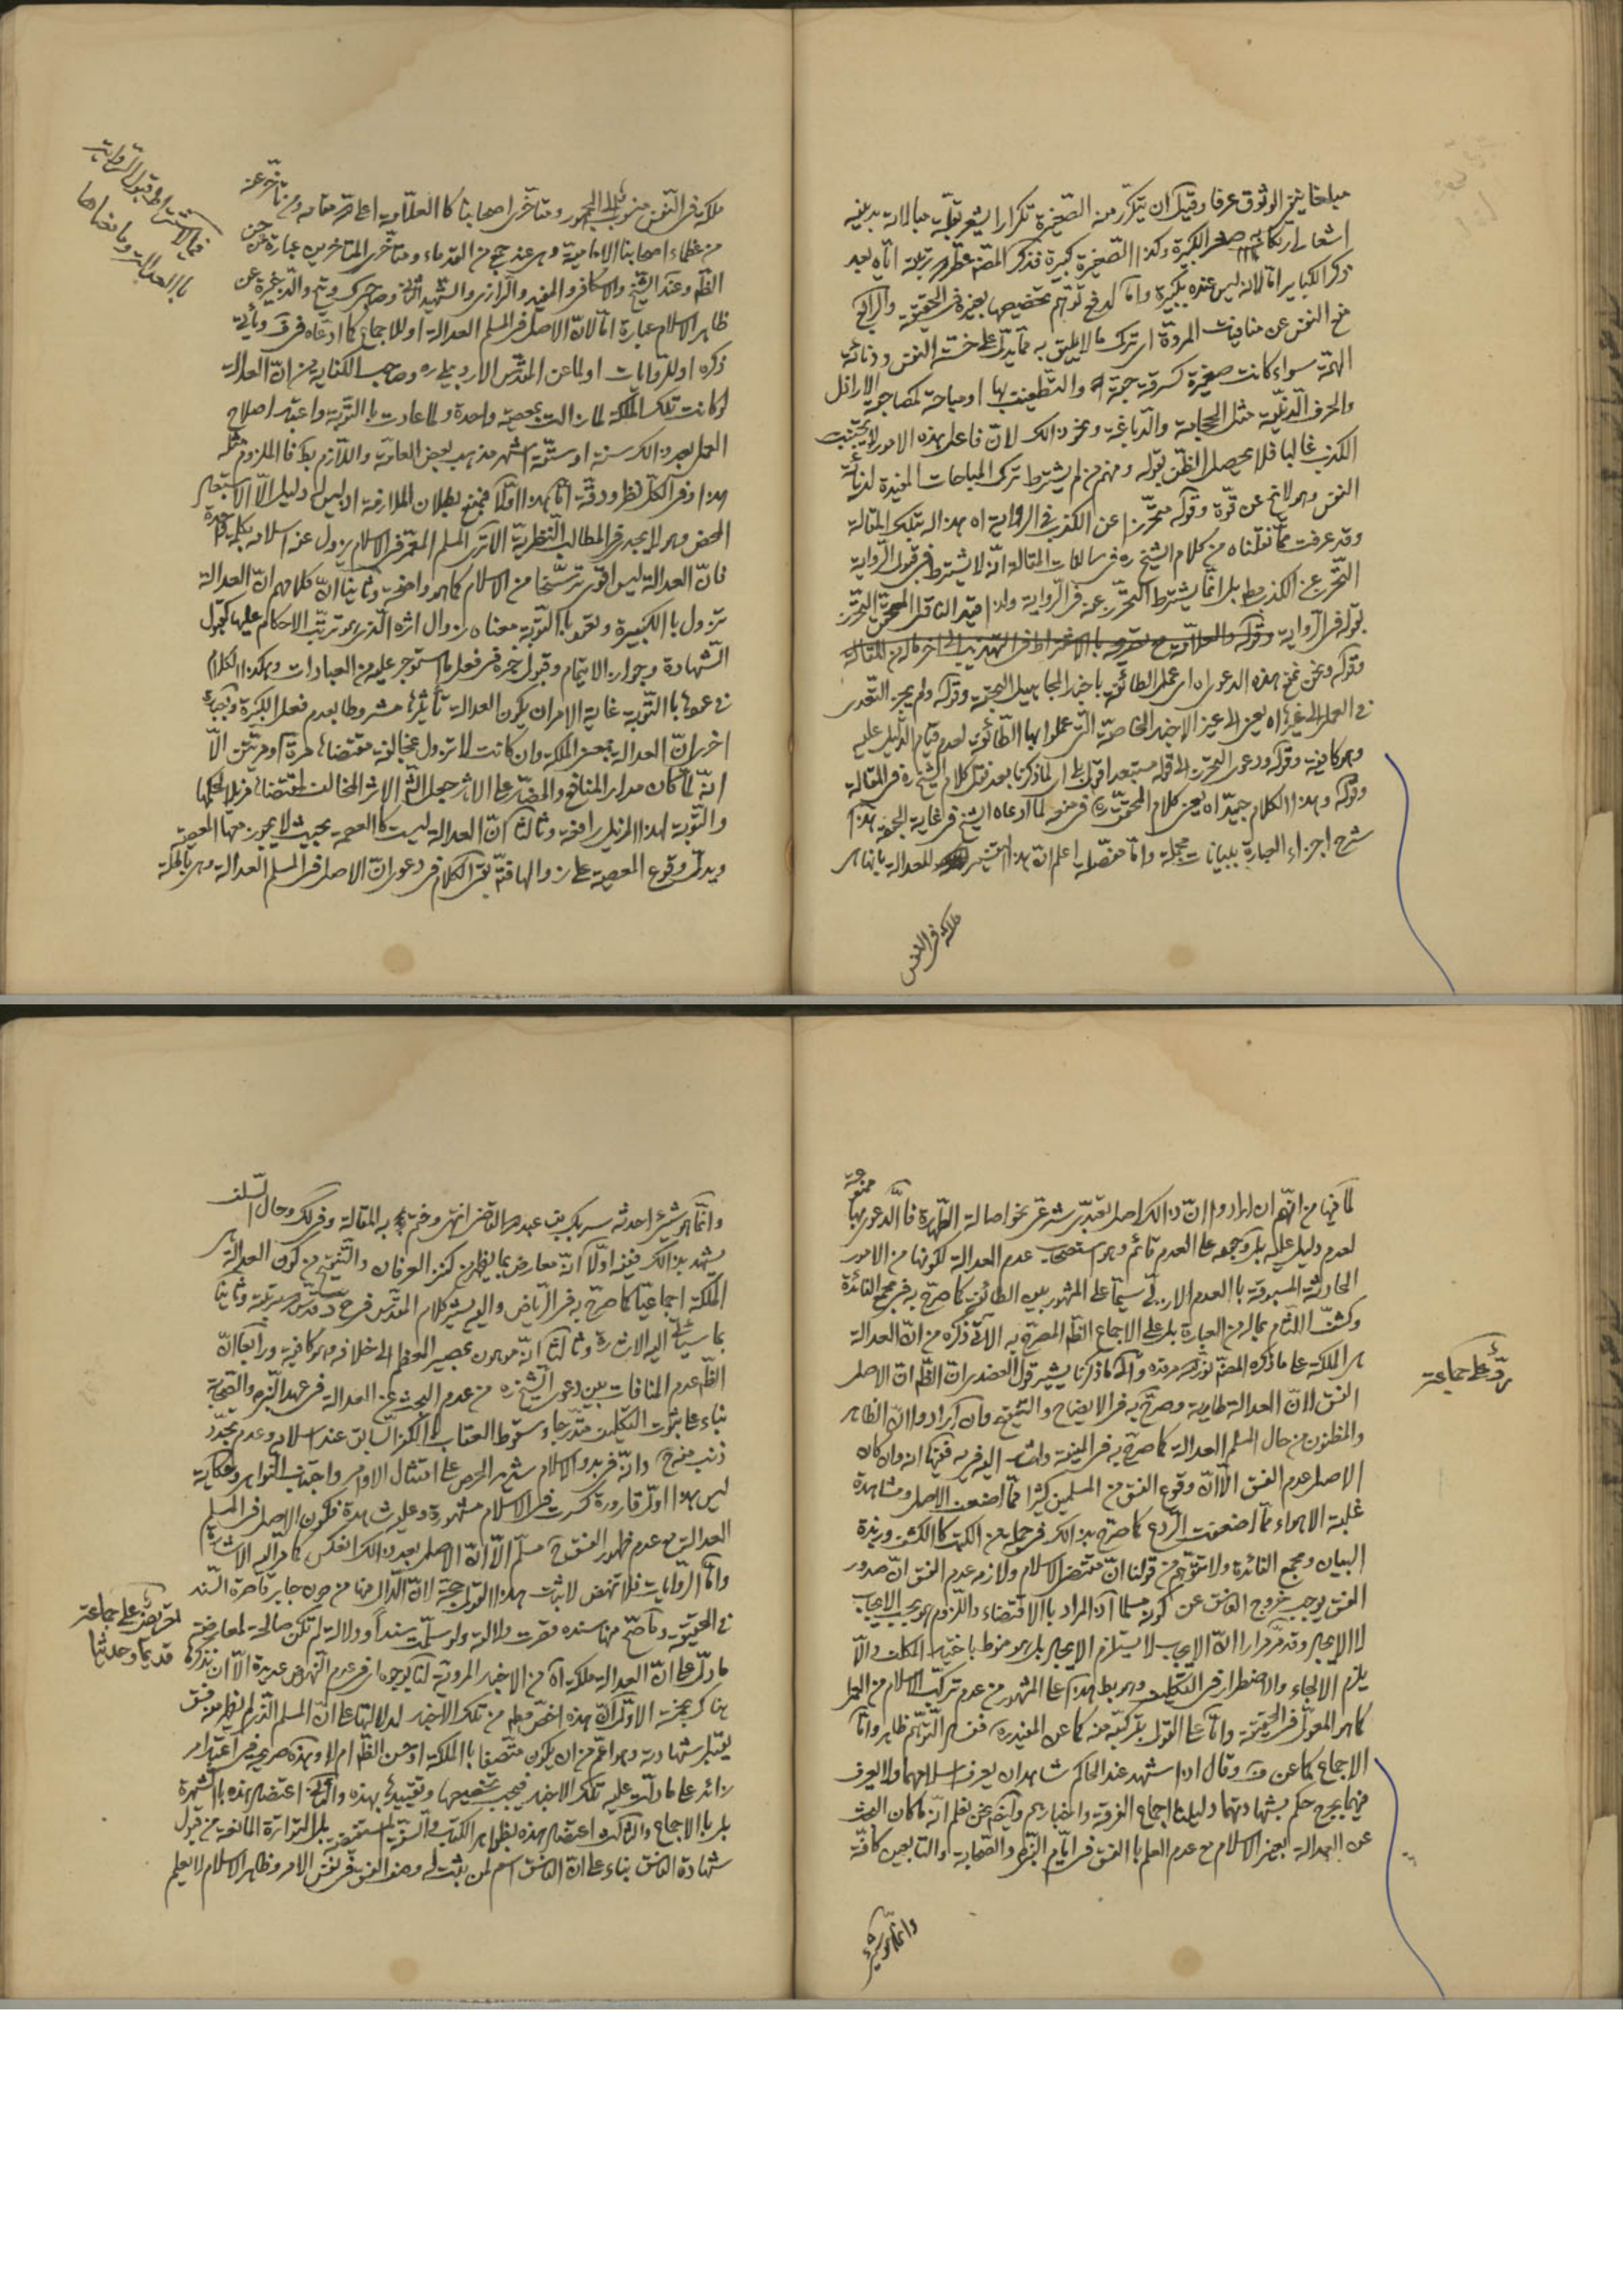 مبلغا ينفي الوثوق عرفا وقيل ان يتكرر منه الصغيرة تكرارا يشعر بقلة مبالاته بدينه
اشعار ارتكاب الكبيرة وكذا الصغيرة كبيرة فذكر المصنف
ذكر الكباير اما لانه ليس عنده بكبيرة واما لدفع توهم تخصيصها بغيره في الحقيقة والرابع
منع النفس عن منافيات المروة اى ترك ما لا يليق به مما يدل على خسة النفس ودنائة
الهمة سواء كانت صغيرة كسرقة حبة والتطفيف بها او مباحة كمصاحبة الاراذل
والحرف الدنية مثل الحجامة والدباغة ونحو ذلك لان فاعل هذه الامور لا يجتنب
الكذب غالبا فلا يحصل الظن بقوله ومنهم من لم يشترط ترك المباحات المفيدة لدنائة
النفس وهو لا يخ عن قوة وقوله متحرزا عن الكذب في الرواية اه هذا له بتلك المقالة
وقد عرفت مما نقلناه من كلام الشيخ ره في سالفات المقالة انه لا يشترط في قبول الرواية
التحرز عن الكذب مط بل انما يشترط التحرز عنه في الرواية ولذا قيد الناقل المحقق التحرز
بقوله في الرواية
وقوله ونحن نمنع هذه الدعوى اه اى عمل الطائفة باخبار المجاهيل البحتة وقوله ولم يجز التعدى
في العمل الى غيرها اه يعنى الى غير الاخبار الخاصة التى عملوا بها الطائفة لعدم قيام الدليل عليه
وهو كافية وقوله ودعوى التحرز الى قوله مستبعد اقول لما ذكرنا بعد نقل كلام الشيخ ره في المقالة
وقوله وهذا الكلام جيد اه يعنى كلام المحقق ره في منعه لما ادعاه الشيخ في غاية الجودة هذا
شرح اجزاء العبارة ببيانات مجملة واما مفصله اعلم ان هذا التفسير للعدالة بانها هى
ملكة في النفس
ملكة في النفس منسوب الى المشهور ومتأخرى اصحابنا كالعلامة اعلى الله مقامه ومن تأخر عنه
من عظماء اصحابنا الامامية وهى عند جمع من القدماء ومتأخرى المتأخرين عبارة عن حسن
الظاهر وعند الشيخ والاسكافى والمفيد والرازى والشهيد الثانى
ظاهر الاسلام عبارة اما لان الاصل في المسلم العدالة او للاجماع كما ادعاه
ذكره او للروايات او لما عن المقدس الاردبيلى ره وصاحب الكفاية من ان العدالة
لو كانت تلك الملكة لما زالت بمعصية واحدة ولما عادت بالتوبة واعتبر اصلاح
العمل بعد ذلك سنة او ستة اشهر مذهب بعض العامة واللازم بط فالملزوم مثله
هذا وفي الكل نظر ودقة اما هذا اولا فمنع بطلان الملازمة اذ ليس له دليل الا الاستبعاد
المحض وهو لا يجدى في المطالب النظرية الا ترى المسلم المعمر في الاسلام يزول عنه اسلامه بكلمة
فان العدالة ليس اقوى ترسخا من الاسلام كما هو واضحة وثانيا ان كلامهم ان العدالة
تزول بالكبيرة وتعود بالتوبة معناه زوال اثره الذى هو ترتب الاحكام عليها كقبول
الشهادة وجواز الايتمام وقبول خبره في فعل ما استوجر عليه من العبادات وهكذا الكلام
في عودها بالتوبة غاية الامر ان يكون العدالة تأثيرها مشروطا بعدم فعل الكبيرة
اخرى ان العدالة بمعنى الملكة وان كانت لا تزول بمخالفة مقتضاها مرة او مرتين الا
انه لما كان مدار المنافع والمضار على الاثر جعل الشارع الاثر المخالف لمقتضاها مزيلا لحكمها
والتوبة لهذا المزيل رافعة وثالثا ان العدالة ليست كالعصمة بحيث لا يجوز معها المعصية
ويدل وقوع المعصية على زوالها فتم بقى الكلام في دعوى ان الاصل في المسلم العدالة وهى باطلة
في الاشتراط قبول الرواية
بالعدالة وما معناها
لما فيها من انهم ان ارادوا ان ذلك اصل تعبدى شرعى نحو اصالة الطهارة فالدعوى بها ممنوعة
لعدم دليل عليه بل وجهه على العدم قائم وهو استصحاب عدم العدالة لكونها من الامور
الحادثة المسبوقة بالعدم الازلى سيما على المشهور بين الطائفة كما صرح به في مجمع الفائدة
وكشف اللثام بماله من العبارة بل على الاجماع الظاهر المصرح به الاتى ذكره من ان العدالة
هى الملكة على ما ذكره المصنف نور الله مرقده والى ما ذكرنا يشير قول العضدى ان الظاهر ان الاصل
الفسق لان العدالة طارية وصرح به في الايضاح والتنقيح وان ارادوا ان الظاهر
والمظنون من حال المسلم العدالة كما صرح به في الغنية واشار اليه في
الاصل عدم الفسق الا ان وقوع الفسق من المسلمين كثيرا مما اضعف الاصل ومشاهدة
غلبة الاهواء مما اضعفت الردع كما صرح بذلك في جملة من الكتب كالكشف وزبدة
البيان ومجمع الفائدة ولا تتوهم من قولنا ان مقتضى الاسلام ولازمه عدم الفسق ان صدور
الفسق يوجب خروج الفاسق عن كونه مسلما اذ المراد بالاقتضاء واللزوم هو بحسب الايجاب
لا الايجاد وقد مر مرارا ان الايجاب لا يستلزم الايجاد بل هو منوط باختيار المكلف والا
يلزم الالجاء والاضطرار في التكليف وهو بط هذا على المشهور من عدم تركب الاسلام من العمل
كما هو المعول في الحقيقة واما على القول بتركبه منه كما عن المفيد ره فدفع التوهم ظاهر واما
الاجماع كما عن ف وقال اذا شهد عند الحاكم شاهدان يعرف اسلامهما ولا يعرف
فيهما جرح حكم بشهادتهما دليلنا اجماع الفرقة واخبارهم وايضا نحن نعلم انه ما كان البحث
عن العدالة بمعنى الاسلام مع عدم العلم بالفسق في ايام النبى والصحابة والتابعين كافة
وانما هو شىء
رد على جماعة
وانما هو شىء احدثه شريك بن عبد الله القاضى انتهى وختم به المقالة وفي ذلك وحال السلف
يشهد بذلك ففيه اولا انه معارض بما يظهر من كنز العرفان والتنقيح من كون العدالة هى
الملكة اجماعيا كما صرح به في الرياض واليه يشير كلام المقدس
بما سيأتى اليه الاشارة وثالثا انه موهون بمصير المعظم الى خلافه وهو كافية ورابعا ان
الظاهر عدم المنافات بين دعوى الشيخ ره من عدم البحث عن العدالة في عهد النبى والصحابة
بناء على ثبوت التكليف متدرجا وسقوط العقاب بالكفر السابق عند اسلامه وعدم تجدد
ذنب منه ح وانه في بدو الاسلام شديد الحرص على امتثال الاوامر واجتناب النواهى
ليس هذا اول قارورة كسرت في الاسلام مشهورة
العدالة مع عدم ظهور الفسق ح مسلم الا ان الاصل بعد ذلك انعكس كما مر اليه الاشارة
واما الروايات فلا تنهض لاثبات هذا القول حجة لان الدال منها من دون جابر قاصرة السند
في الحقيقة وما صح منها سنده قصرت دلالة ولو سلمت سندا ودلالة لم تكن صالحة لمعارضة
ما دل على ان العدالة ملكة اه من الاخبار المروية
هناك بخمسة الاول ان هذه اخص منه من تلك الاخبار لدلالتها على ان المسلم الذى لم يظهر منه فسق
يقبل شهادته وهو اعم من ان يكون متصفا بالملكة او حسن الظاهر ام لا وهذه صريحة في اعتبار
زائد على ما دلت عليه تلك الاخبار فيجب تخصيصها وتقييدها بهذه والثانى اعتضاد هذه بالشهرة
بل بالاجماع والثالث اعتضاد هذه بظواهر الكتاب والسنة المستفيضة بل المتواترة المانعة من قبول
شهادة الفاسق بناء على ان الفاسق اسم لمن يثبت له وصف الفسق في نفس الامر وظاهر الاسلام لا يعلم
تعريض على جماعة
قديما وحديثا